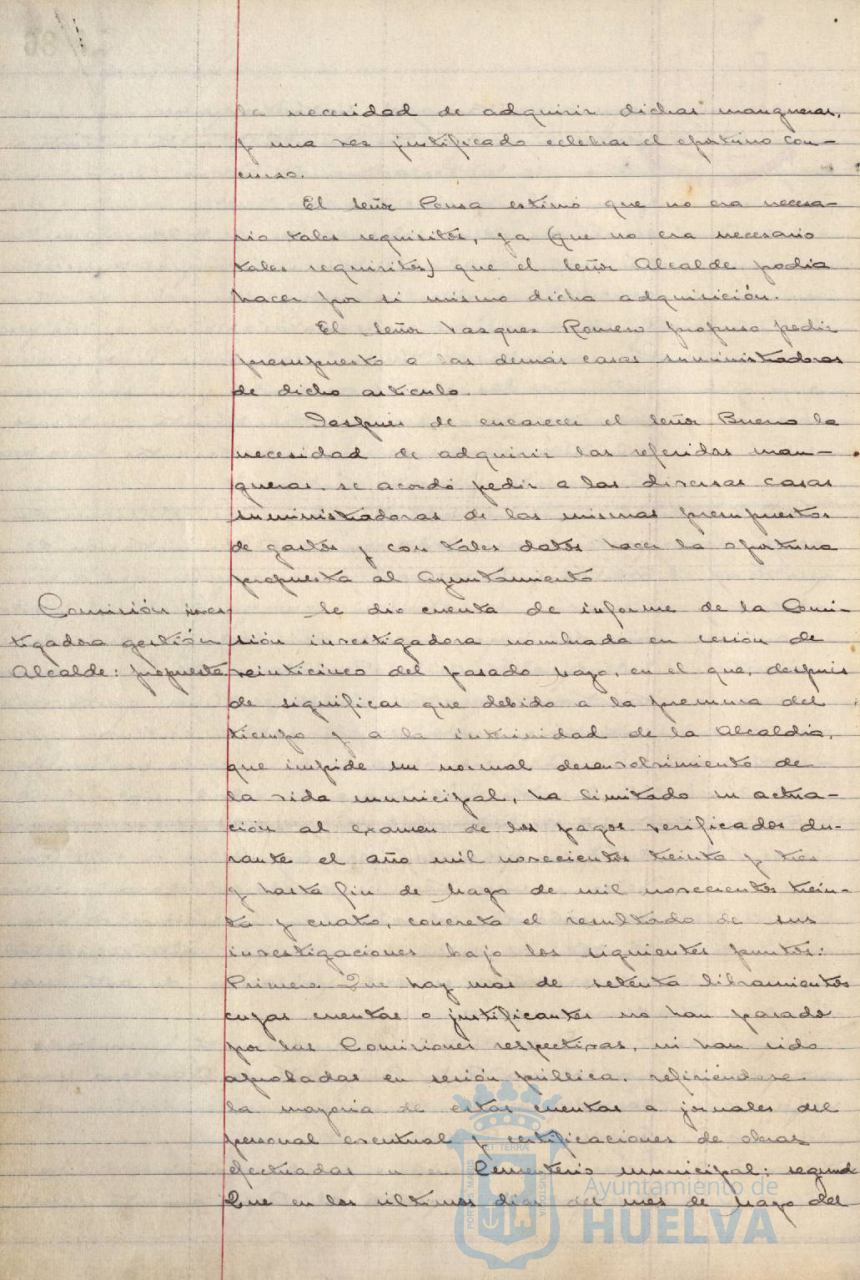 la necesidad de adquirir dichas mangueras,
y una vez justificado celebrar el oportuno con-
curso.
El señor Ponsa estimó que no era necesa-
rio tales requisitos, ya (que no era necesario
tales requisitos) que el señor Alcalde podia
hacer por si mismo dicha adquisición.
El señor Vasques Romero propuso pedir
presupuesto a las demás casas suministradoras
de dicho artículo.
Después de encarecer el señor Bueno la
necesidad de adquirir las referidas man-
gueras, se acordó pedir a las diversas casas
suministradoras de las mismas presupuestos
de gastos y con tales datos hacer la oportuna
propuesta al Ayuntamiento.
Comisión inves
tigadora gestión
Alcalde: propuesta
Se dio cuenta de informe de la Comi-
sión investigadora nombrada en sesión de
veinticinco del pasado Mayo, en el que, después
de significar que debido a la premura del
tiempo y a la interinidad de la Alcaldia,
que impide un normal desenvolvimiento de
la vida municipal, ha limitado su actua-
ción al examen de los pagos verificados du-
rante el año mil novecientos treinta y tres
y hasta fin de Mayo de mil novecientos trein-
ta y cuatro, concreta el resultado de sus
investigaciones bajo los siguientes puntos:
Primero Que hay mas de setenta libramientos
cuyas cuentas o justificantes no han pasado
por las Comisiones respectivas, ni han sido
aprobadas en sesión pública, refiriéndose
la mayoria de estas cuentas a jornales del
personal eventual y certificaciones de obras
efectuadas en Cementerio municipal: segundo
Que en los últimos dias del mes de Mayo del
Ayuntamiento de
HUELVA